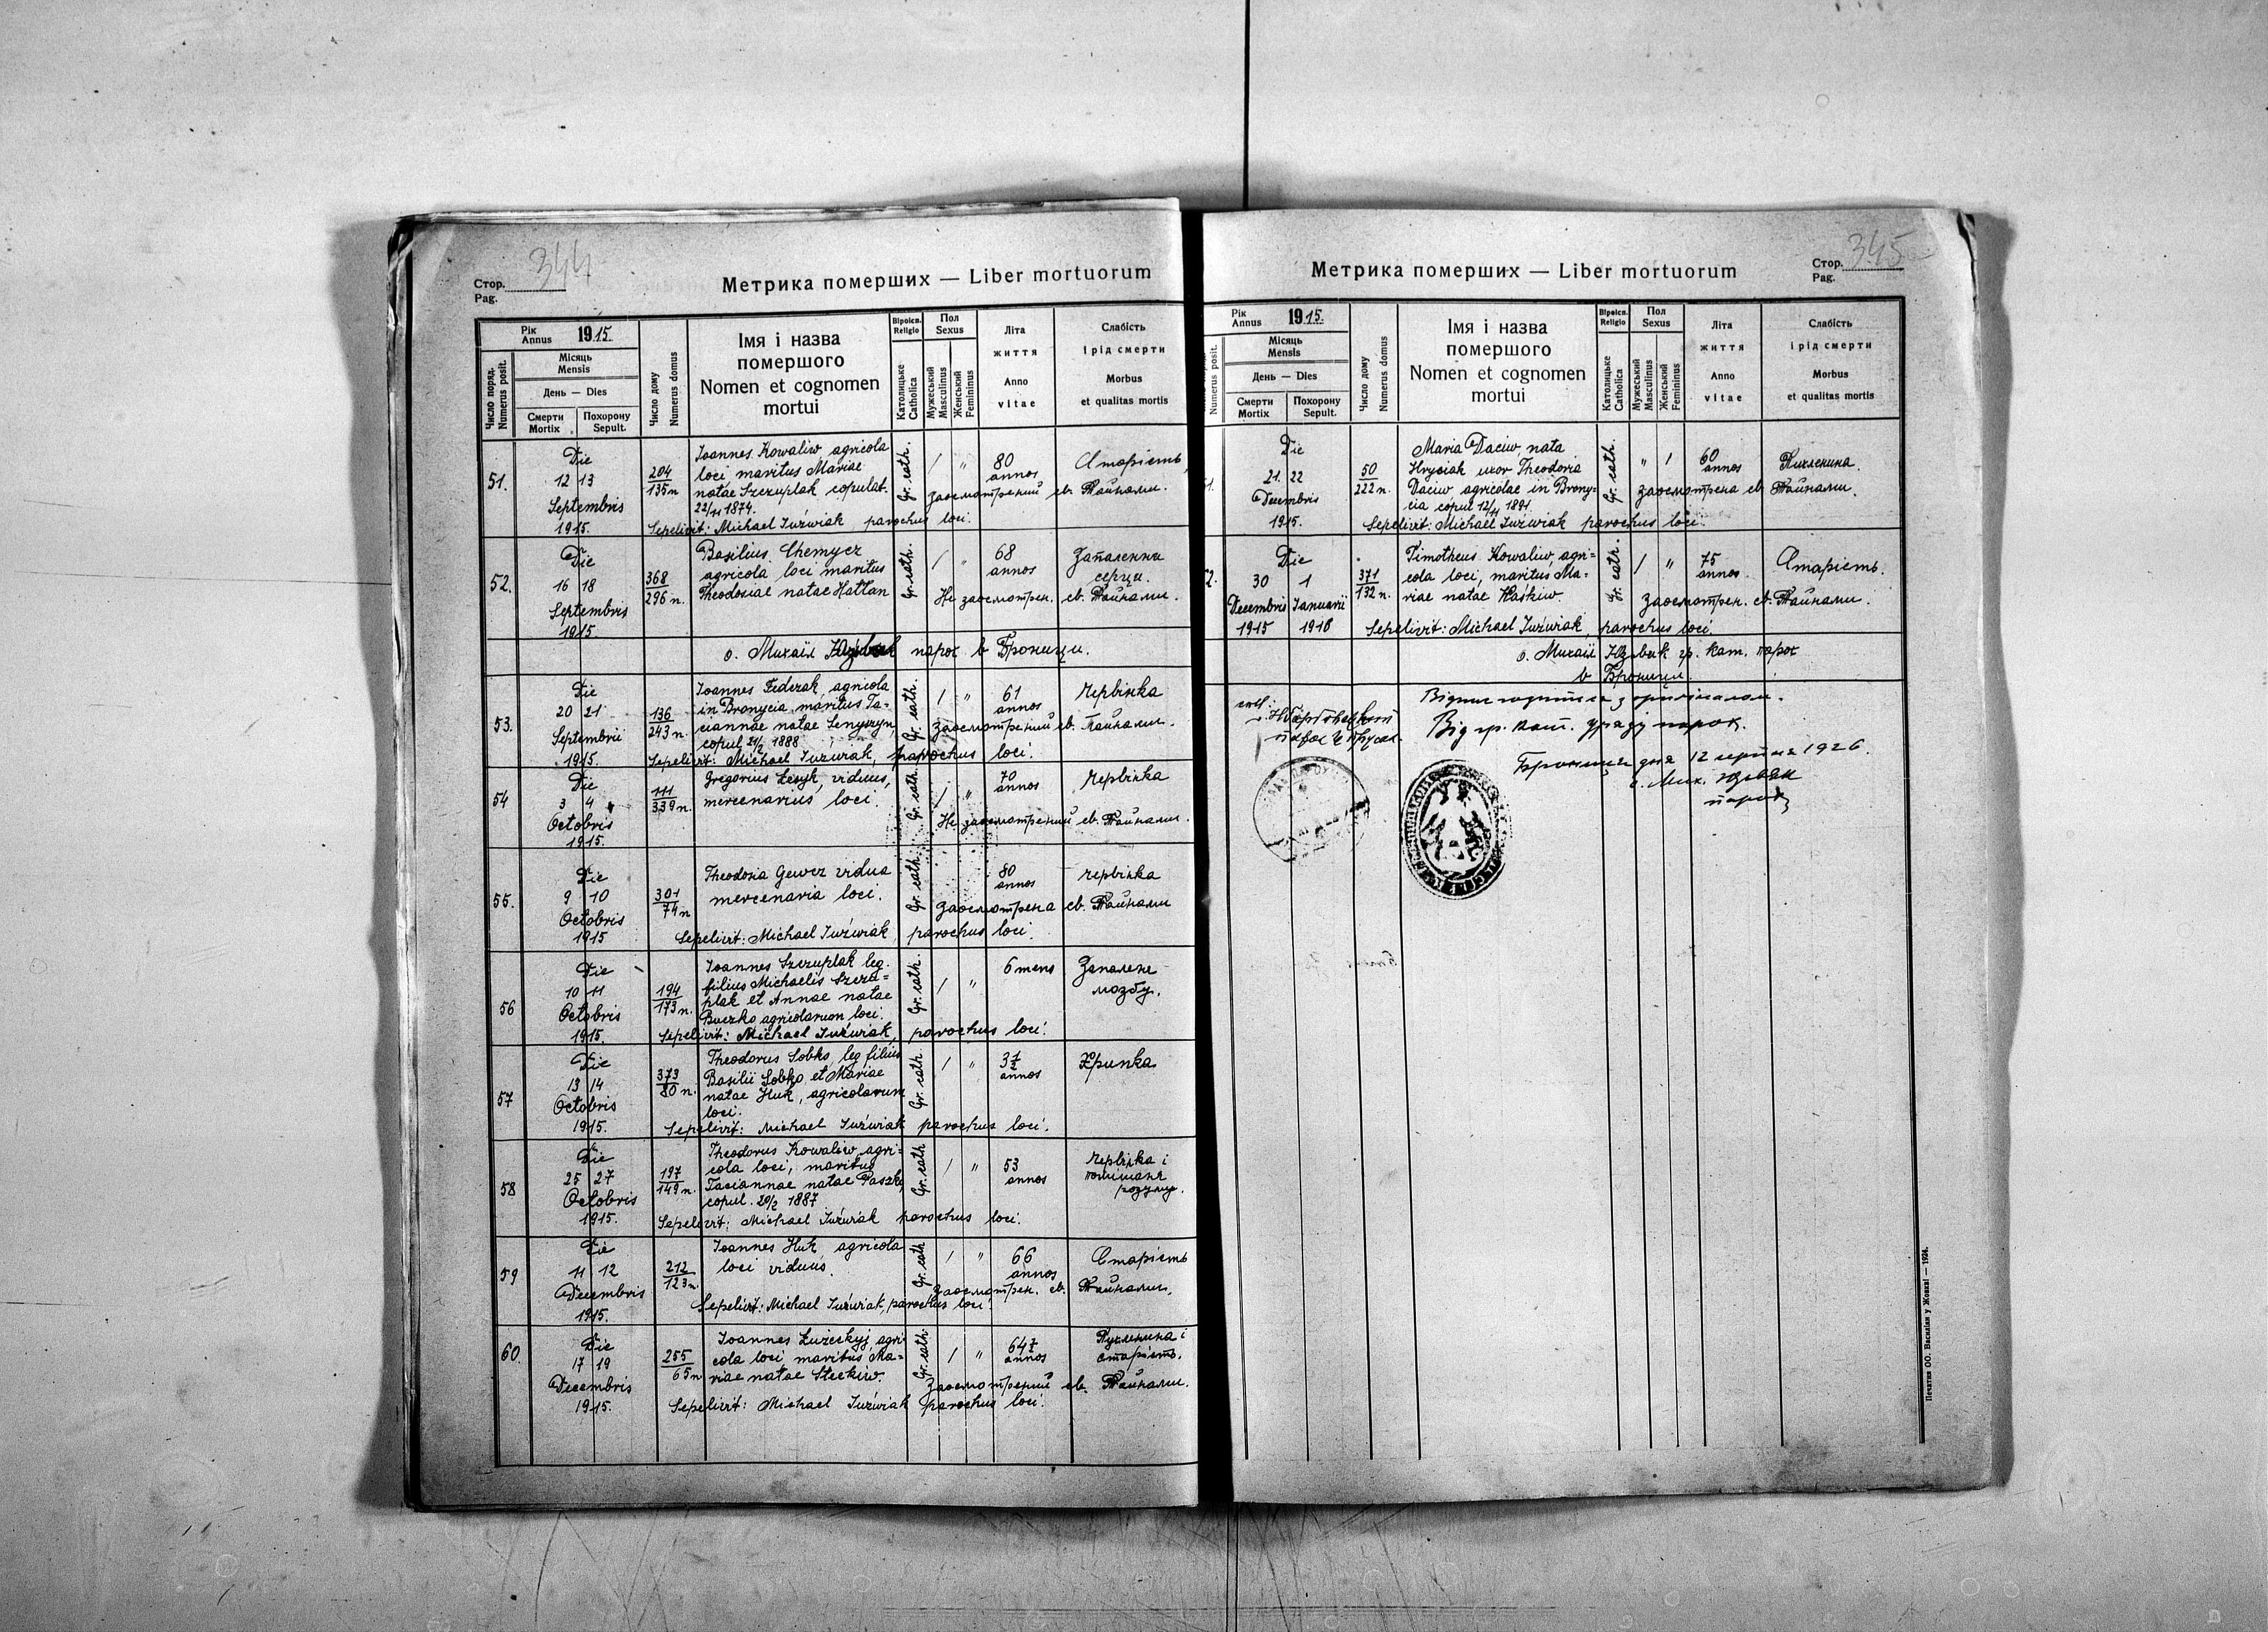 344
Стор.
Pag.
Метрика померших — Liber mortuorum
Рік
Annus
1915.
Місяць
Mensis
День — Dies
Смерти
Mortix
Похорону
Sepult.
Число поряд.
Numerus posit.
Число дому
Numerus domus
Імя і назва
помершого
Nomen et cognomen
mortui
Віроісп.
Religio
Католицьке
Catholica
Пол
Sexus
Мужеський
Masculinus
Женський
Femininus
Літа
життя
Anno
vitae
Слабість
і рід смерти
Morbus
et qualitas mortis
51.
Die
12 13
Septembris
1915.
204
135 n
Ioannes Kowaliw agricola
loci maritus Mariae
natae Szczuplak copulat.
22/11 1874.
Gr. cath.
/ "
80
annos
Старість
заосмотрений св. Тайнами.
Sepelivit: Michael Iuźwiak parochus loci.
52.
Die
16 18
Septembris
1915
368
296 n.
Basilius Chemycz
agricola loci maritus
Theodosiae natae Hattan
Gr. cath.
/ "
68
annos
Запалення
серця.
Не заосмотрен. св. Тайнами.
о. Михаїл парох в Броници.
53.
Die
20 21
Septembris
1915.
136
243 n.
Ioannes Federak, agricola
in Bronycia maritus Ta=
ciannae natae Senyszyn,
copul 21/2 1888
Gr. cath.
/ "
61
annos
червінка
Заосмотрений св. Тайнами.
Sepelivit: Michael Iuźwiak, parochus loci.
54
Die
3 4
Octobris
1915.
111
339 n.
Gregorius Łesyk, viduus,
mercenarius loci.
Gr. cath.
/ "
70
annos
червінка
Не заосмотрений св. Тайнами.
55.
Die
9 10
Octobris
1915
301
74 n
Theodosia Gewcz vidua
mercenaria loci.
Gr. cath.
80
annos
червінка
Заосмотрена св. Тайнами
Sepelivit: Michael Iuźwiak, parochus loci.
56
Die
10 11
Octobris
1915.
194
173 n.
Ioannes Szczuplak leg.
filius Michaelis Szczu=
plak et Annae natae
Buczko agricolarum loci.
Gr. cath.
/ "
6 mens
Запалене
мозбу.
Sepelivit: Michael Iuźwiak, parochus loci.
57
Die
13 14
Octobris
1915.
373
80 n.
Theodorus Sobko, leg filius
Basilii Sobko et Mariae
natae Huk, agricolarum
loci.
Gr. cath
/ "
3 1/2
annos
Хрипка
Sepelivit: Michael Iuźwiak parochus loci.
58
Die
25 27
Octobris
1915.
197
149 n.
Theodorus Kowaliw agri=
cola loci, maritus
Taciannae natae Paszko,
copul. 20/2 1887
Gr. cath
/ "
53
annos
червінка і
помішанє
розуму.
Sepelivit: Michael Iuźwiak parochus loci.
59
Die
11 12
Decembris
1915.
212
123 n.
Ioannes Huk agricola
loci viduus.
Gr. cath
/ "
66
annos
Старість
Заосмотрен. св. Тайнами.
Sepelivit: Michael Iuźwiak, parochus loci.
60.
Die
17 19
Decembris
1915.
255
65 n
Ioannes Łużeckyj, agri=
cola loci maritus Ma=
riae natae Steckiw.
Gr. cath
/ "
64 1/2
annos
Пухлинина і
старість.
Заосмотрений св. Тайнами.
Sepelivit: Michael Iuźwiak parochus loci.
Метрика померших — Liber mortuorum
Стор.
Pag.
345
Рік
Annus
1915.
Місяць
Mensis
День — Dies
Смерти
Mortix
Похорону
Sepult.
Numerus posit.
Число дому
Numerus domus
Імя і назва
помершого
Nomen et cognomen
mortui
Віроісп.
Religio
Католицьке
Catholica
Пол
Sexus
Мужеський
Masculinus
Женський
Femininus
Літа
життя
Anno
vitae
Слабість
і рід смерти
Morbus
et qualitas mortis
1.
Die
21. 22
Decembris
1915.
50
222 n.
Maria Daciw, nata
Hryciak uxor Theodoria
Daciw agricolae in Brony=
cia copul 12/11 1891
Gr. cath.
" /
60
annos
заосмотрена св Тайнами.
Sepelivit: Michael Iuźwiak parochus loci.
2.
Die
30 1
Decembris Ianuarii
1915 1916
371
132 n.
Timotheus Kowaliw, agri=
cola loci, maritus Ma=
riae natae Haśkiw.
Gr. cath.
/ "
75
annos
Старість.
Заосмотрен. св. Тайнами.
Sepelivit: Michael Iuźwiak, parochus loci.
о. Михаїл Юзвяк гр. кат. парох
в Брониця.
з оригіналом.
Від гр. кат. уряду парох.
Брониця дня 12 серпня 1926.
о. Мих. Юзвяк
парох
Печатня ОО. Василіян у Жовкві — 1924.